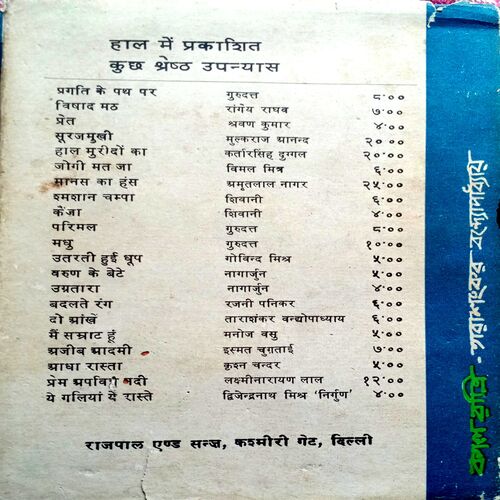 हाल में प्रकाशित
कुछ श्रेष्ठ उपन्यास
प्रगति के पथ पर गुरुदत्त ८·००
विषाद मठ रांगेय राघव ७·००
प्रेत श्रवण कुमार ४·००
सूरजमुखी मुल्कराज आनन्द २०·००
हाल मुरीदों का कर्तारसिंह दुग्गल २०·००
जोगी मत जा विमल मित्र ६·००
मानस का हंस अमृतलाल नागर २५·००
श्मशान चम्पा शिवानी ६·००
कैंजा शिवानी ४·००
परिमल गुरुदत्त ८·००
मधु गुरुदत्त १०·००
उतरती हुई धूप गोविन्द मिश्र ५·००
वरुण के बेटे नागार्जुन ५·००
उग्रतारा नागार्जुन ४·००
बदलते रंग रजनी पनिकर ६·००
दो आंखें ताराशंकर वन्द्योपाध्याय ६·००
मैं सम्राट हूं मनोज वसु ५·००
अजीब आदमी इस्मत चुग़ताई ७·००
आधा रास्ता कृश्न चन्दर ५·००
प्रेम अपवित्र नदी लक्ष्मीनारायण लाल १२·००
ये गलियां ये रास्ते द्विजेन्द्रनाथ मिश्र 'निर्गुण' ४·००
राजपाल एण्ड सन्ज़, कश्मीरी गेट, दिल्ली
কালরাত্রি - তারাশংকর বন্দ্যোপাধ্যায়